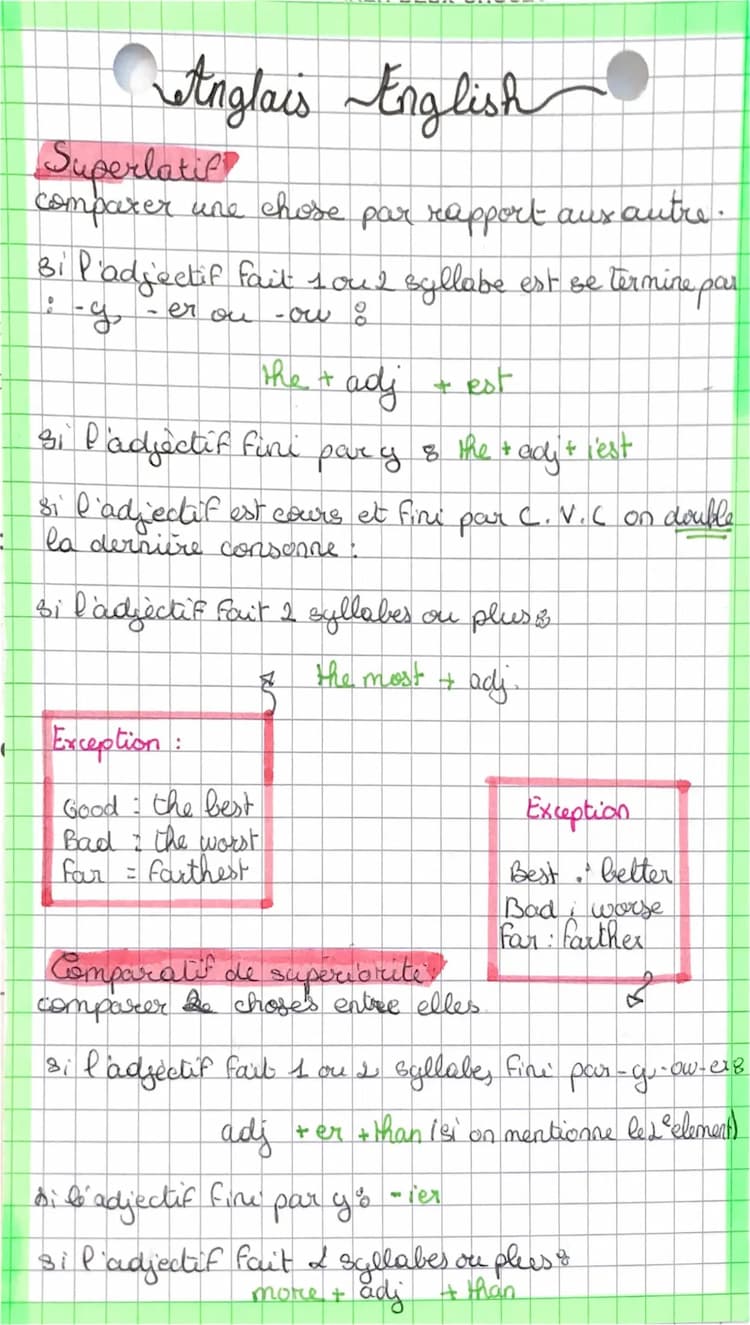 Anglais English
Superlatif
comparer une chose par rapport aux autre.
si l'adjectif fait 1 ou 2 syllabe est se termine par
: -y, -er ou -ow :
the + adj + est
si l'adjèctif fini par y : the + adj + iest
si l'adjectif est cours et fini par C.V.C on double
la dernière consonne :
si l'adjèctif fait 2 syllabes ou plus :
the most + adj.
Exception :
Good : the best
Bad : the worst
Far = farthest
Exception
Best : better
Bad : worse
Far : farther
Comparatif de supériorité
comparer 2 choses entre elles.
si l'adjèctif fait 1 ou 2 syllabes, fini par -y, -ow -er :
adj + er + than (si on mentionne le 2e element)
si l'adjectif fini par y : -ier
si l'adjectif fait 2 syllabes ou plus :
more + adj + than